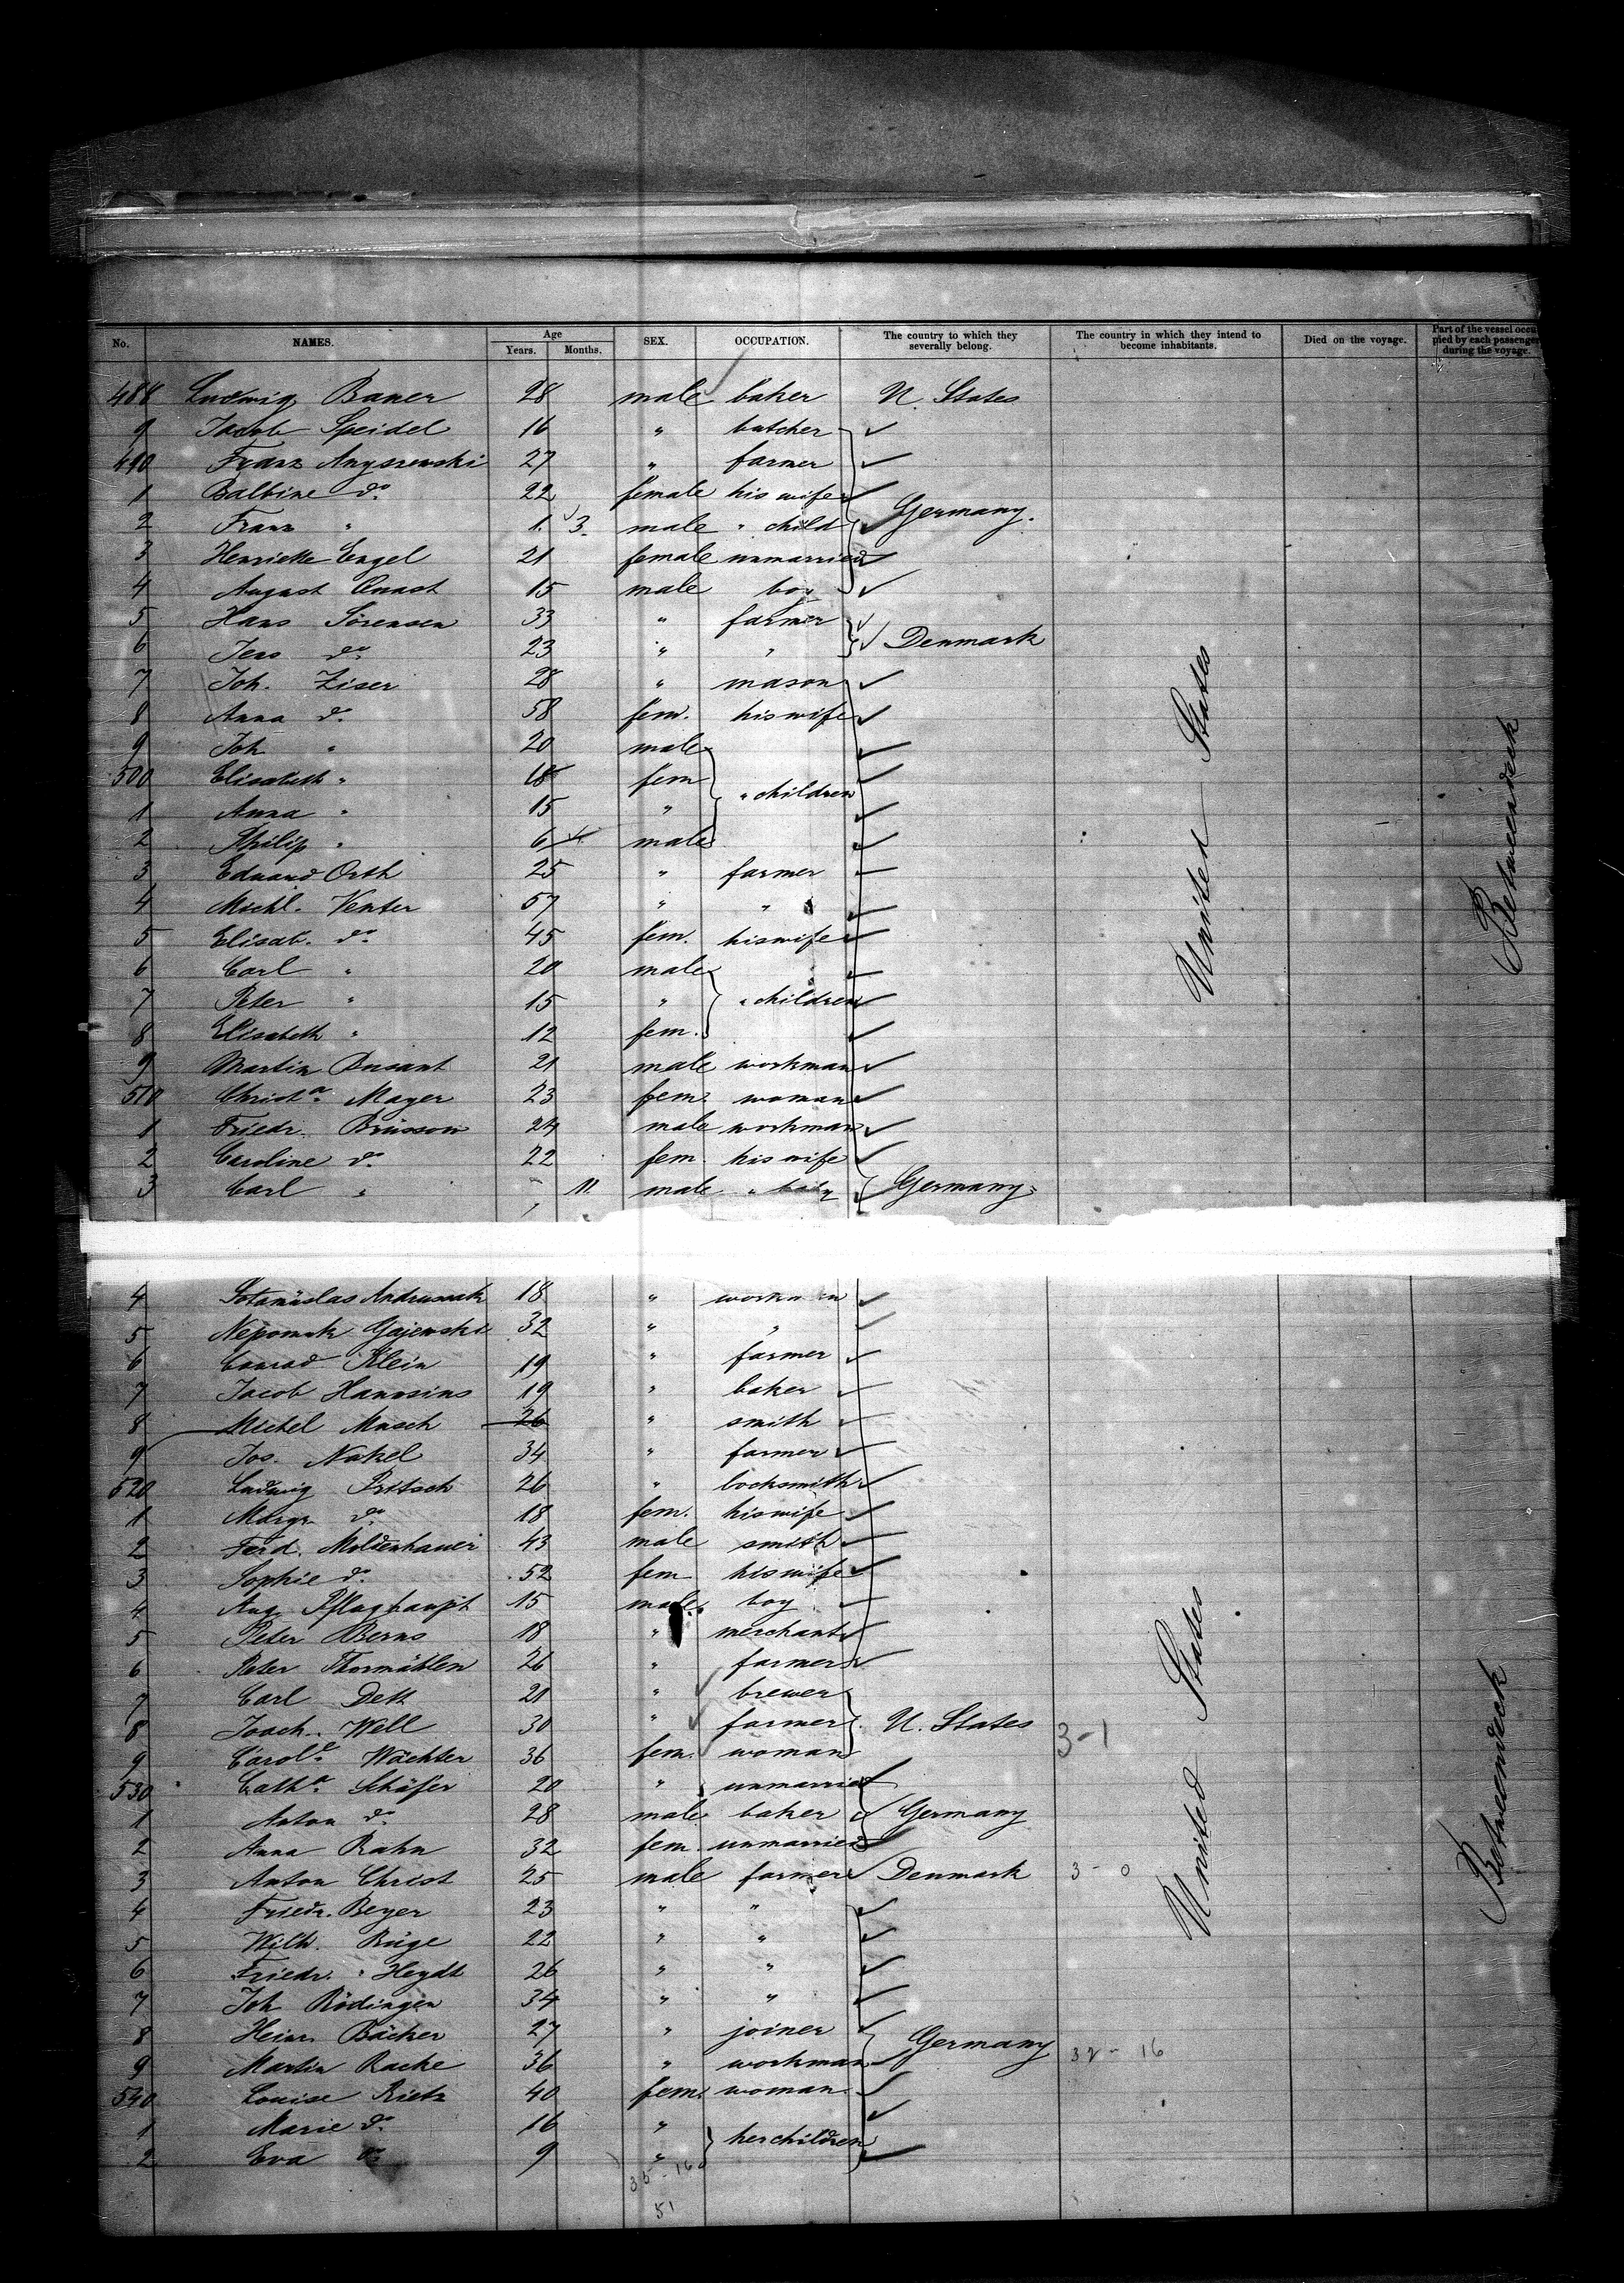 No. NAMES. Age Years. Months. SEX. OCCUPATION. The country to which they severally belong. The country in which they intend to become inhabitants. Died on the voyage. Part of the vessel occupied by each passenger during the voyage.
488 Ludwig Bauer 28 male baker U. States
9 Jacob Speidel 16 " butcher
490 Franz Anyszewski 27 " farmer
1 Balbine do. 22 female his wife
2 Franz " 1. 3. male " child Germany.
3 Henriette Engel 21 female unmarried
4 August Quast 15 male boy
5 Hans Sörensen 33 " farmer
6 Jens do. 23 " " Denmark
7 Joh. Ziser 28 " mason
8 Anna do. 58 fem. his wife
9 Joh " 20 male
500 Elisabeth " 18 fem " children
1 Anna " 15 "
2 Philip " 6 male
3 Eduard Orth 25 " farmer
4 Michl. Venter 57 " "
5 Elisab. do. 45 fem. his wife
6 Carl " 20 male
7 Peter " 15 " " children
8 Elisabeth " 12 fem.
9 Martin Busant 21 male workman
510 Christa. Mayer 23 fem. woman
1 Friedr. Brüssow 24 male workman
2 Caroline do. 22 fem. his wife
3 Carl " 11. male " baby Germany
United States
Betweendeck
4 18 " workman
5 Nepomuk Gajewski 32 " "
6 Conrad Klein 19 " farmer
7 Jacob 19 " baker
8 Michel Musch 26 " smith
9 Jos. Nakel 34 " farmer
520 Ludwig Pritsch 26 " locksmith
1 Margr. do. 18 fem. his wife
2 Ferd. Moldenhauer 43 male smith
3 Sophie do. 52 fem his wife
4 Aug. Pflughaupt 15 male boy
5 Peter Berns 18 " merchant
6 Peter Thormählen 26 " farmer
7 Carl Dett 21 " brewer
8 Joach. Well 30 " farmer U. States 3-1
9 Carole. Wächter 36 fem. woman
530 Catha. Schäfer 20 " unmarried
1 Anton do. 28 male baker Germany
2 Anna Rahn 32 fem. unmarried
3 Anton Christ 25 male farmer Denmark 3-0
4 Friedr. Beyer 23 " "
5 Wilh. Büge 22 " "
6 Friedr. Heydt 26 " "
7 Joh Rödingen 34 " "
8 Heinr. Bäcker 27 " joiner Germany
9 Martin Racke 36 " workman 32-16
540 Louise Rietz 40 fem. woman
1 Marie do. 16 " her children
2 Eva do. 9 "
35-16
51
United States
Betweendeck